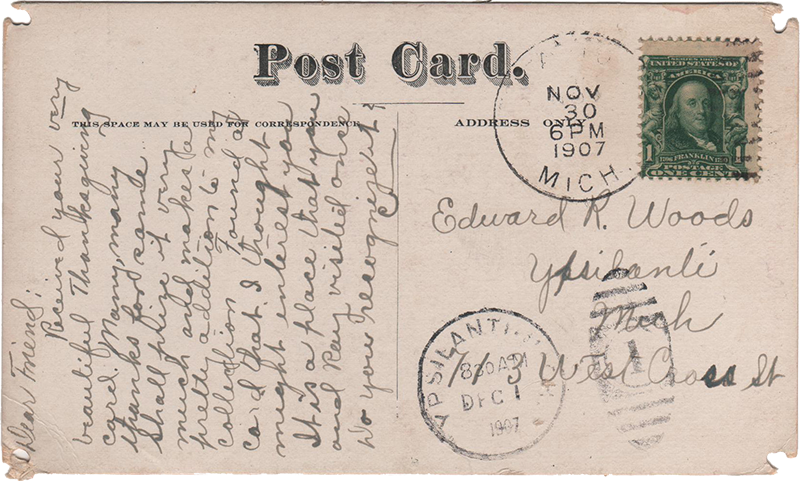 Post Card.
THIS SPACE MAY BE USED FOR CORRESPONDENCE
ADDRESS ONLY
NOV
30
6 PM
1907
MICH.
SERIES 1902
UNITED STATES OF
AMERICA
1 FRANKLIN 1
POSTAGE
ONE CENT
Edward R. Woods
Ypsilanti
Mich
713 West Cross St
YPSILANTI
830AM
DEC 1
1907
1
Dear Friend:
Received your very
beautiful Thanksgiving
card. Many, many
thanks for same
Shall prize it very
much and makes a
pretty addition to my
collection. Found a
card that I thought
might interest you
It is a place that you
and Ray visited once
Do you recognize it?